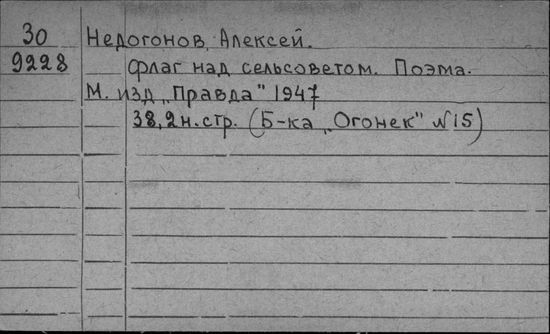 30
9228
Недогонов, Алексей.
Флаг над сельсоветом. Поэма.
М. изд „Правда" 1947
38,2н.стр. (Б-ка „Огонек" №15)